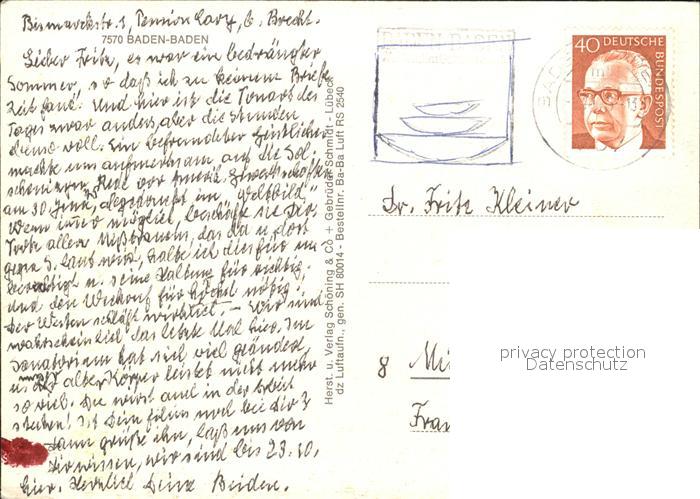 Bismarckstr. 1, Pension Lary, b. Brecht.
7570 BADEN-BADEN
Lieber Fritz, es war ein bedrängter
Sommer, so daß ich zu keinem Brief
Zeit fand. Und hier ist die Tonart des
Tages zwar anders, aber die Stunden
ebenso voll. Ein befreundeter Geistlicher
machte uns aufmerksam auf die Sol-
schenizyn Rede vor Gewerkschaften
am 30. abgedruckt im "Weltbild".
Wenn möglich, beschaffe sie Dir.
Trotz allen Mißbrauchs, das da u. dort
gegen S. laut wird, halte ich dies für
berechtigt u. seine Haltung für richtig
und den Weckruf für höchst nötig.
Der Westen schläft wirklich. – Wir sind
wahrscheinlich das letzte Mal hier. Im
Sanatorium hat sich viel geändert,
u. alter Körper leistet nicht mehr
so viel. Du wirst auch in der Arbeit
stecken! Ist Dein noch bei Dir?
Dann grüße ihn, laß uns von
Dir wissen, wir sind bis 23.10.
hier. Herzlich Deine Beiden.
Herst. u. Verlag Schöning & Co + Gebrüder Schmidt - Lübeck
dz Luftaufn., gen. SH 80014 - Bestellnr. Ba-Ba Luft RS 2540
BADEN-BADEN
40 DEUTSCHE
BUNDESPOST
Dr. Fritz Kleiner
8 Mü
Fra
privacy protection
Datenschutz